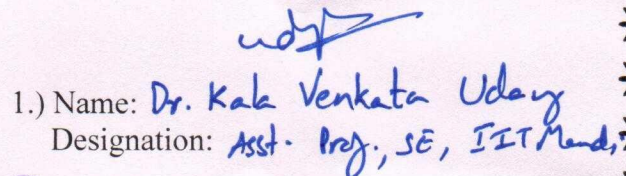 1.) Name: Dr. Kala Venkata Uday
Designation: Asst. Prof., SE, IIT Mandi